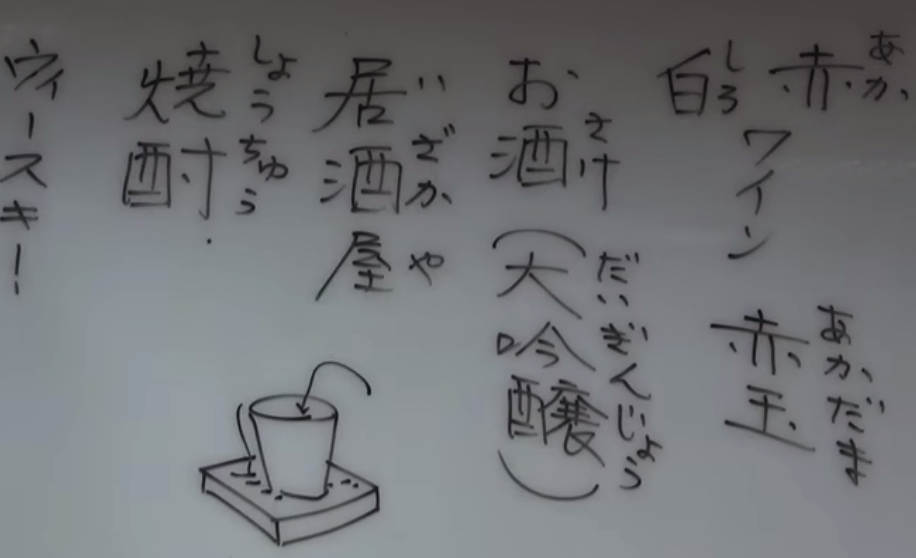 赤 あか
白 しろ
ワイン
赤玉 あかだま
お酒 さけ
(大吟醸) だいぎんじょう
居酒屋 いざかや
焼酎 しょうちゅう
ウィースキー